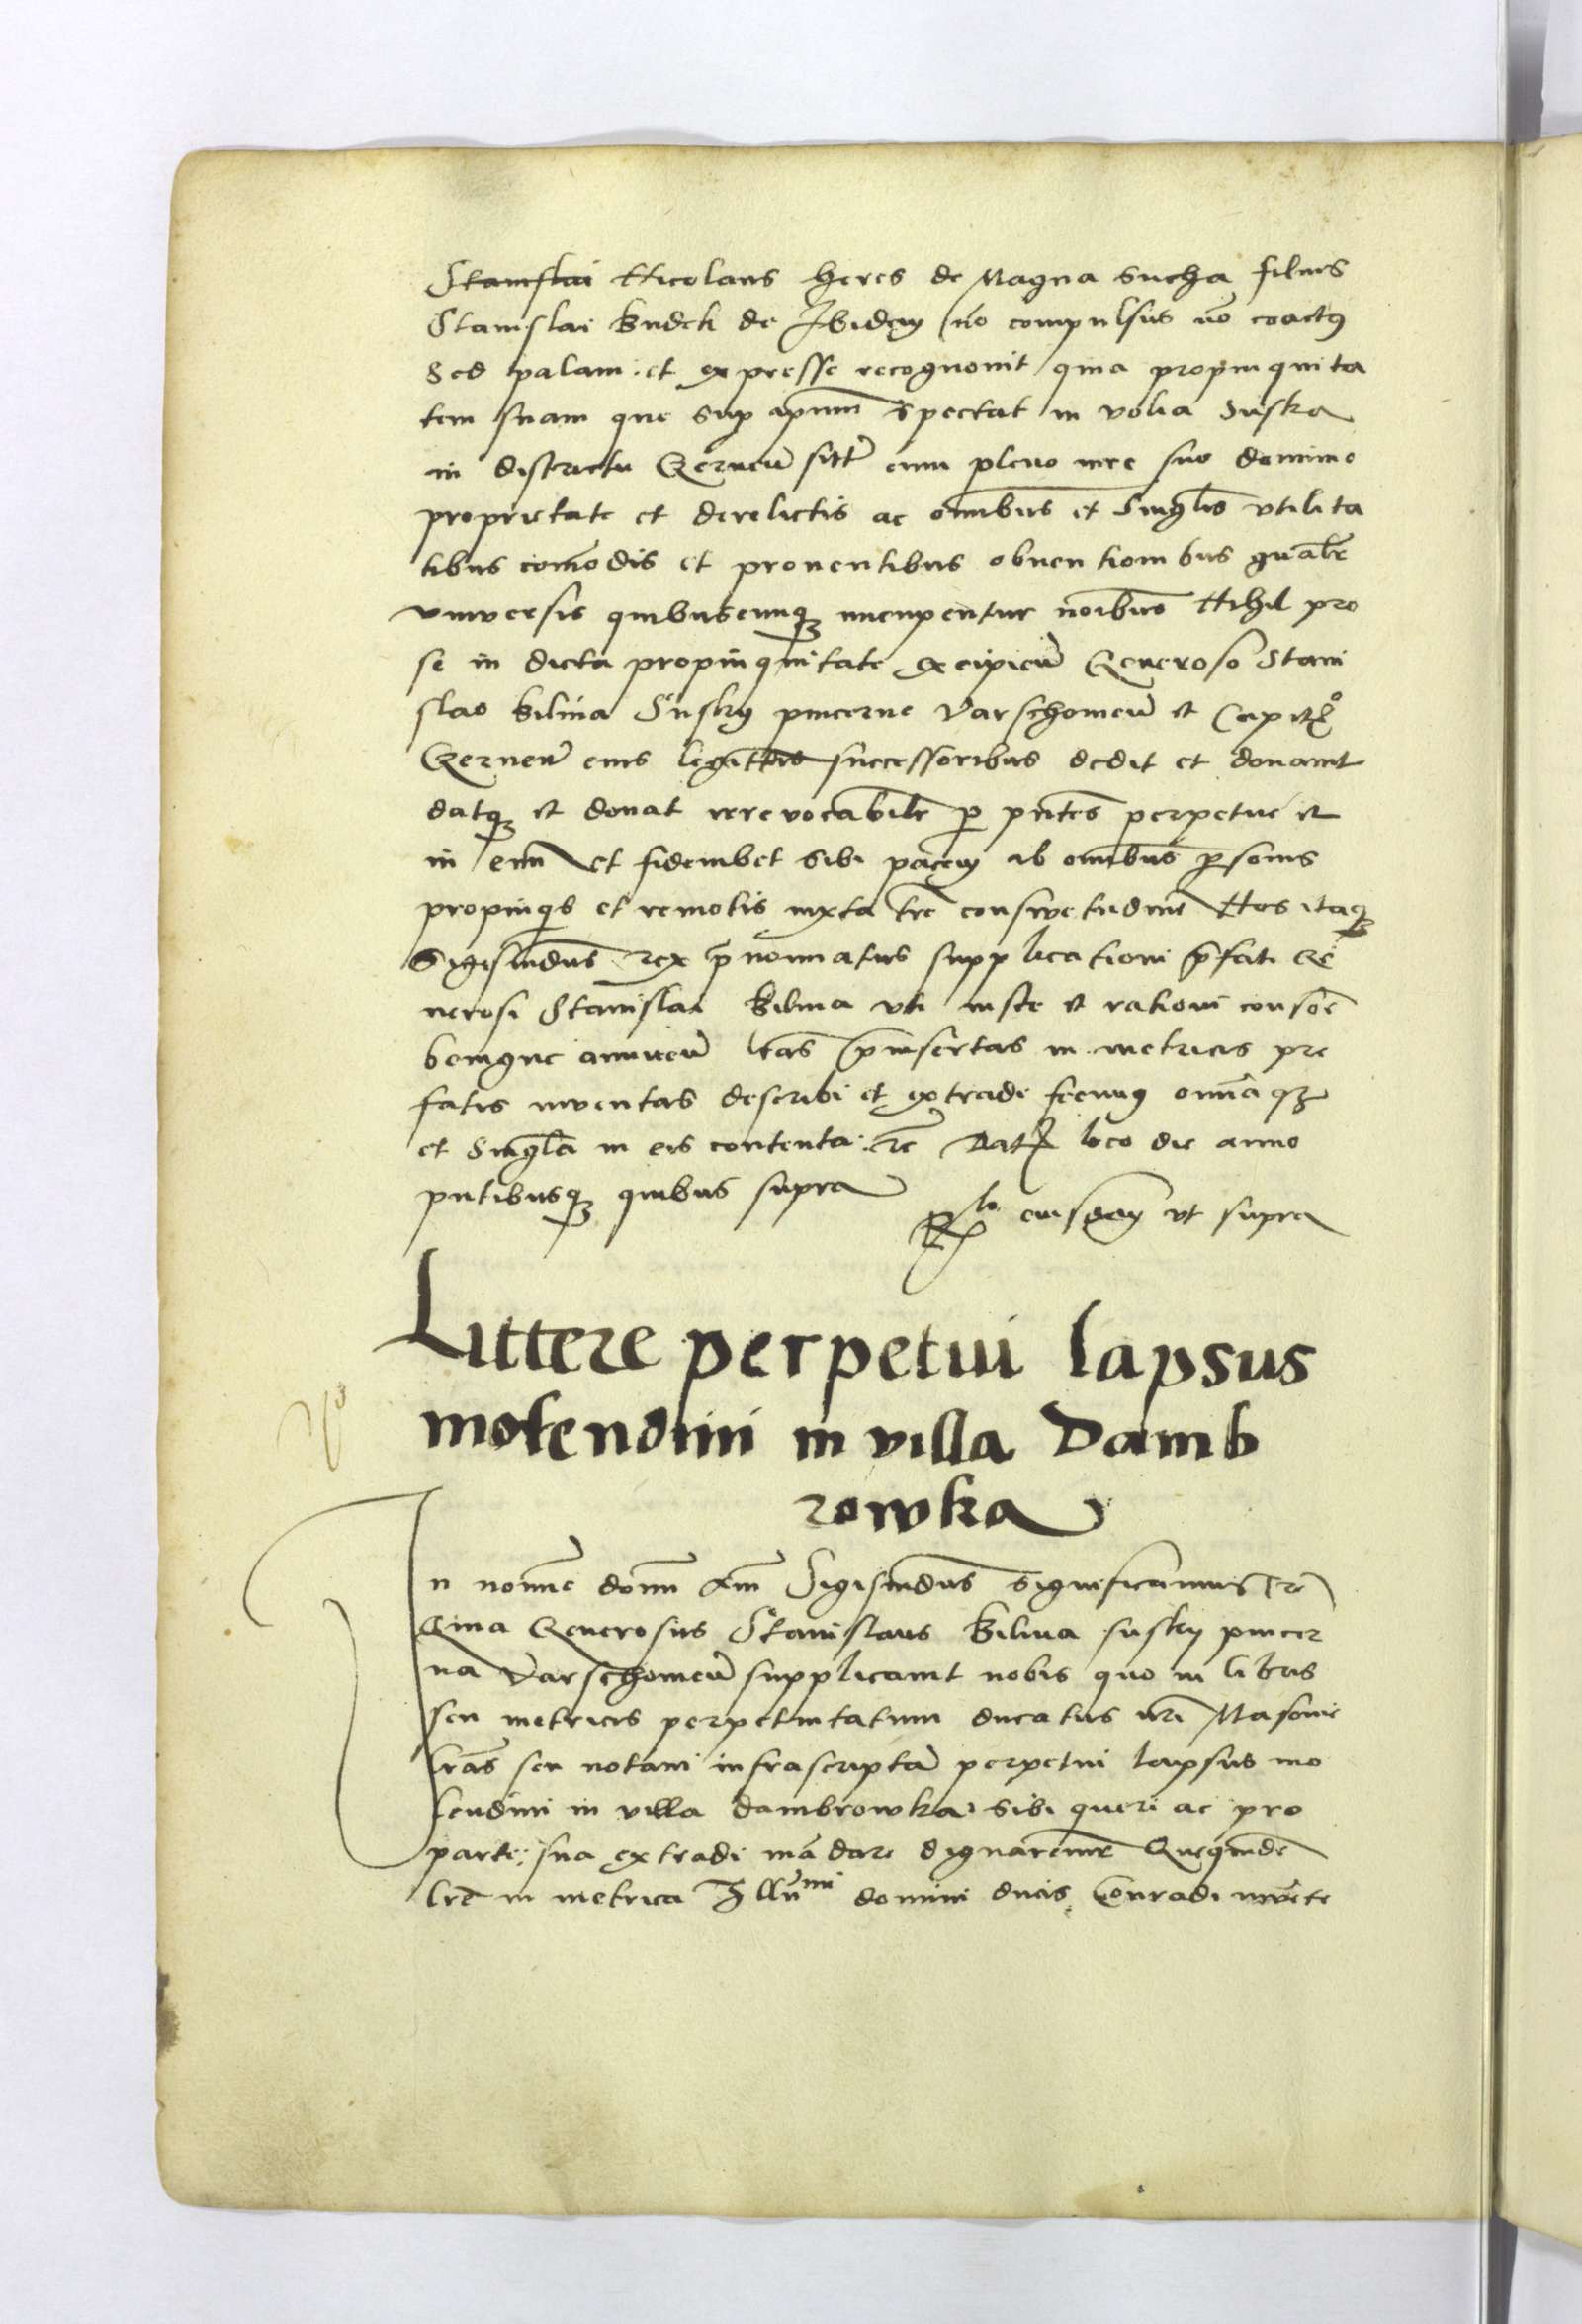 Stanislai Nicolaus heres de Magna Sucha filius
Stanislai Budek de Ibidem no compulsus no coactus
Sed palam et expresse recognovit quia propinquita
tem suam que sup ipsum spectat in volia Suska
in districtu Czernen sitt cum pleno iure suo dominio
proprietate et derelictis ac omnibus et Singlis utilita
tibus comodis et proventibus obventionibus gnalr
universis quibuscunq nuncupentur noibus Nihil pro
se in dicta propinquitate excipien Generoso Stani
slao Bilina Susky pincerne Varschovien et Capit
Czernen eius legittis successoribus dedit et donavit
datq et donat irrevocabilr p pntes perpetue et
in evm et fideiubet sibi pacem ab omnibus psonis
propinqis et remotis iuxta tre conswetudine Nos itaq
Sigismdus Rex pnominatus supplicationi pfati Ge
nerosi Stanislai Bilina uti iuste et rationi consone
benigne annuen lras pinsertas in metricis pre
fatis inventas describi et extradi fecimus omniaqz
et Singla in eis contenta rc Dat loco die anno
pntibusq quibus supra
Rlo eiusdem ut supra
Littere perpetui lapsus
molendini in villa Damb
rowka
In nomine domi Am Sigismdus significamus rc
Quia Generosus Stanislaus Bilina susky pincer
na Varschovien supplicavit nobis quo in libris
seu metricis perpetuitatum ducatus nri Masovie
lras seu notam infrascripta perpetui lapsus mo
lendini in villa dambrowka sibi queri ac pro
parte sua extradi madare dignaremr Quequide
lre in metrica Illumi domini ducis Conradi invete